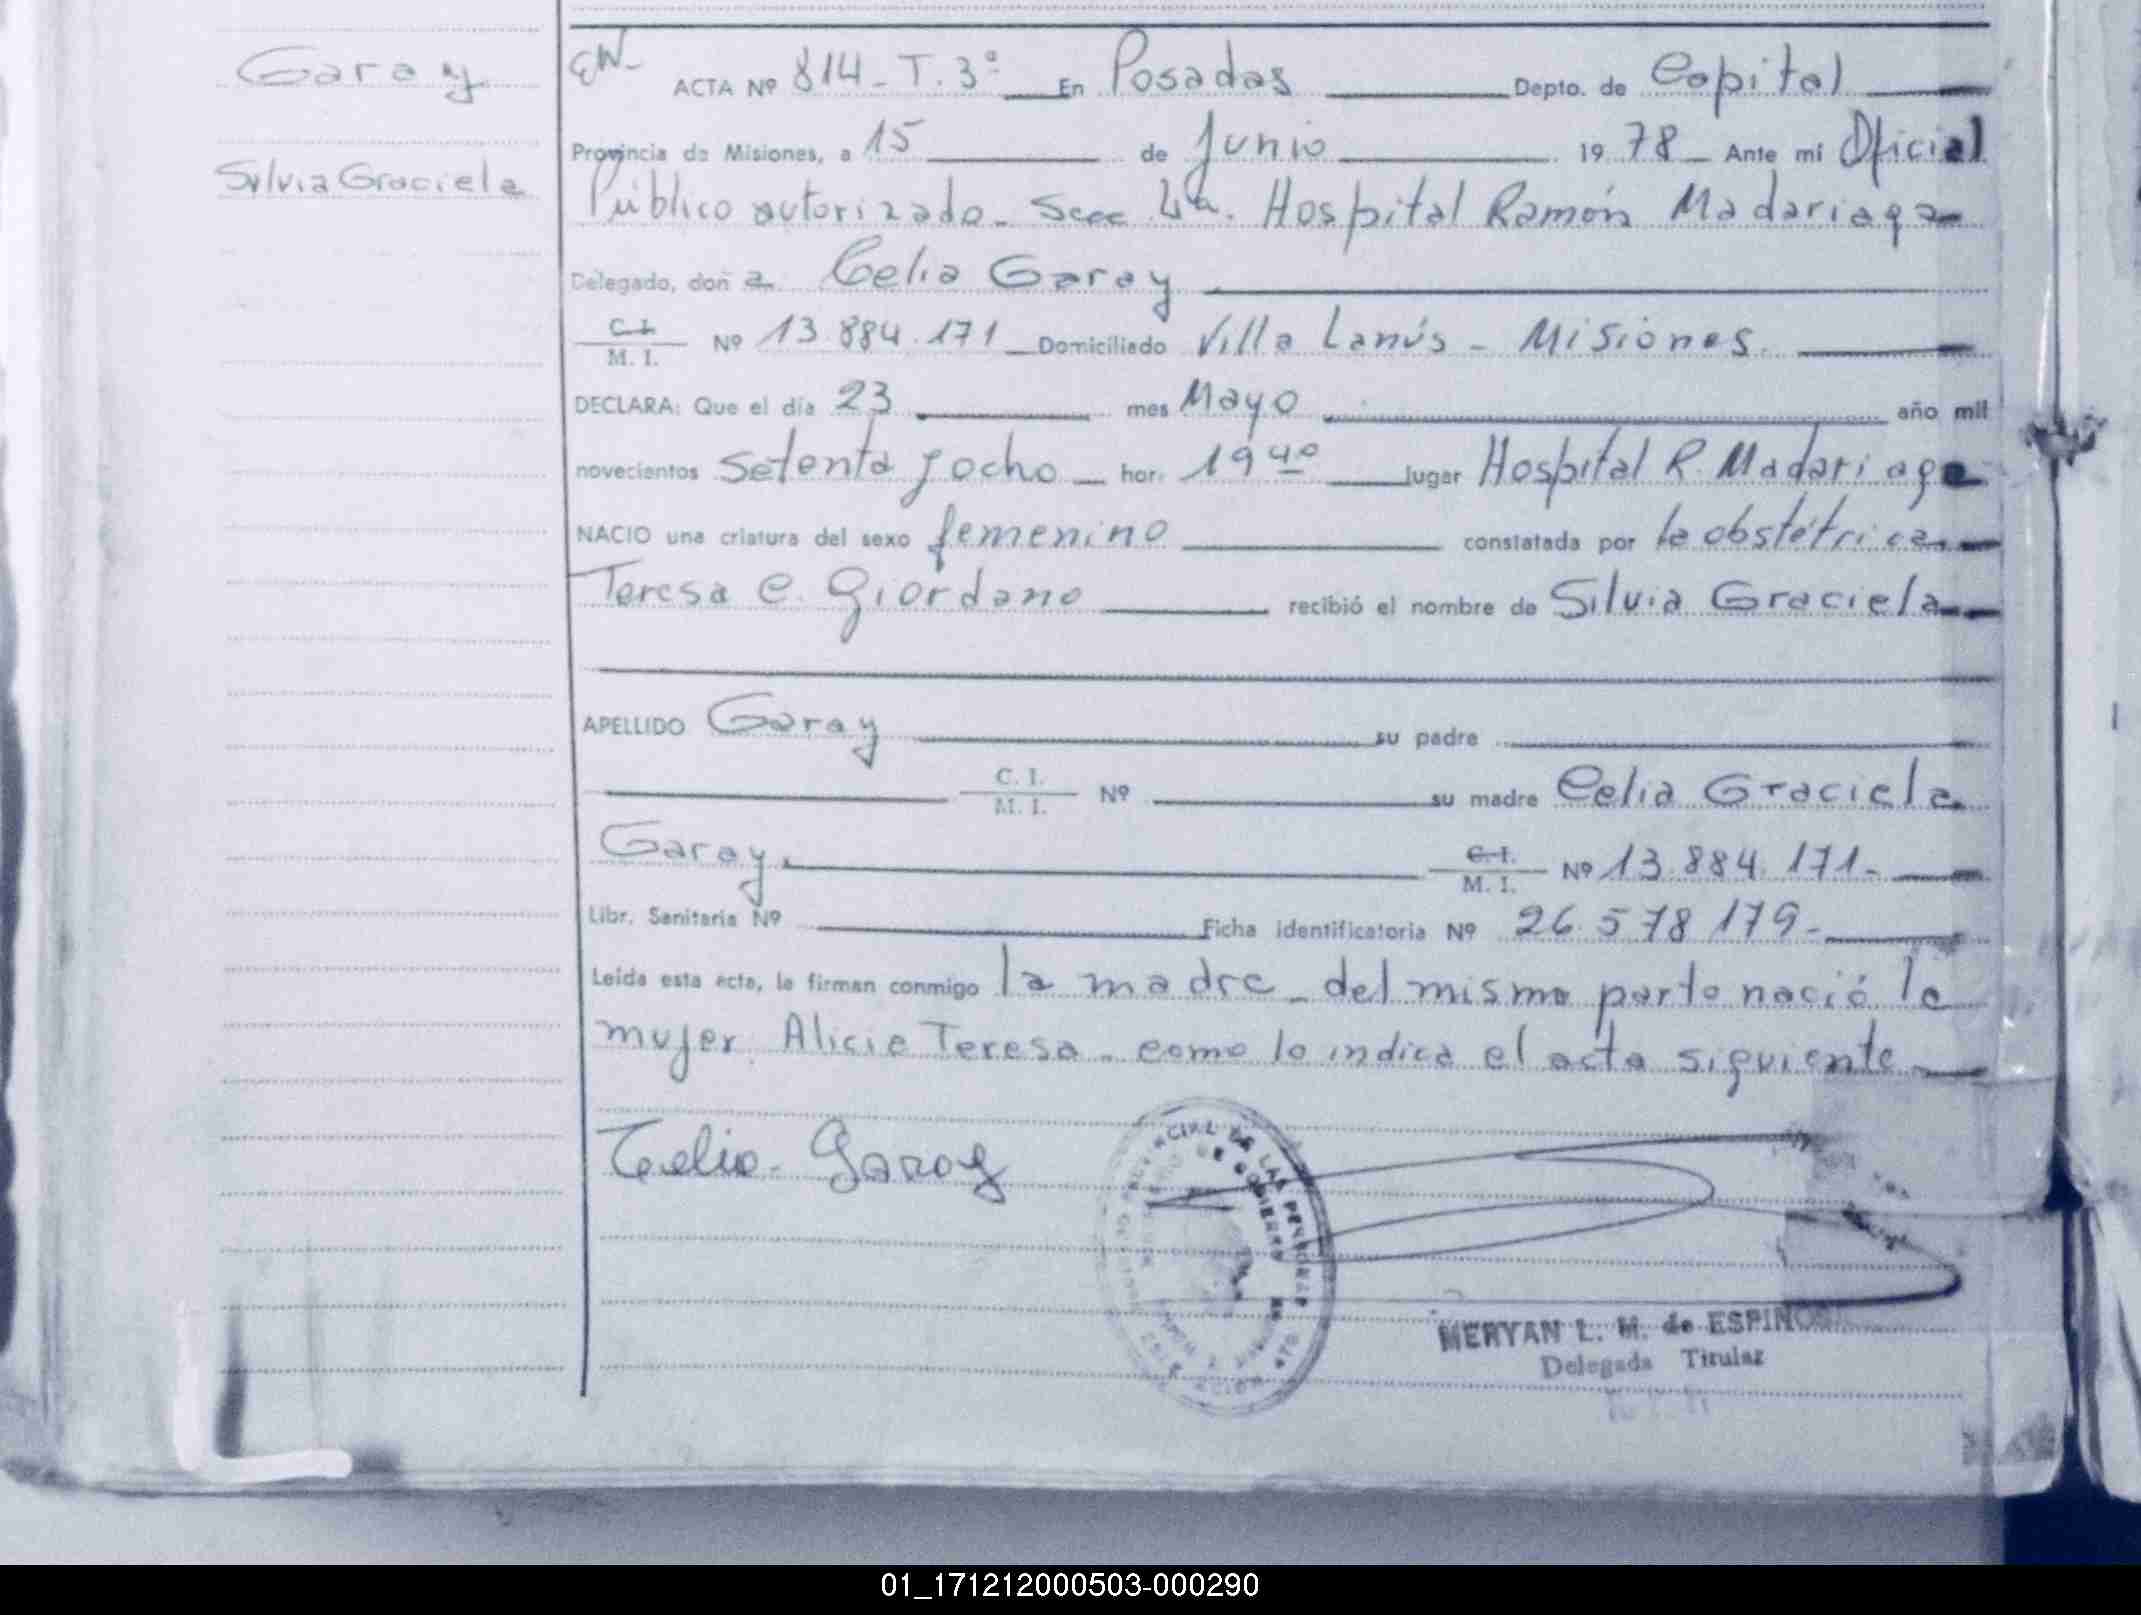 Garay
Silvia Graciela
ACTA Nº 814 - T. 3º En Posadas Depto. de Capital
Provincia de Misiones, a 15 de Junio 19 78 - Ante mí Oficial
Público autorizado - Secc 4ta. Hospital Ramón Madariaga
Delegado, doña Celia Garay
C. I. / M. I. Nº 13.884.171 Domiciliado Villa Lanús - Misiones.
DECLARA: Que el día 23 mes Mayo año mil
novecientos Setenta y ocho hor. 19 40 lugar Hospital R. Madariaga
NACIO una criatura del sexo femenino constatada por la obstétrica
Teresa C. Giordano recibió el nombre de Silvia Graciela
APELLIDO Garay su padre
C. I. / M. I. Nº su madre Celia Graciela
Garay C. I. / M. I. Nº 13.884.171-
Libr. Sanitaria Nº Ficha identificatoria Nº 26.578.179-
Leída esta acta, la firman conmigo la madre - del mismo parto nació la
mujer Alicia Teresa - como lo indica el acta siguiente
Celia Garay
MERYAN L. M. de ESPINOSA
Delegada Titular
01_171212000503-000290